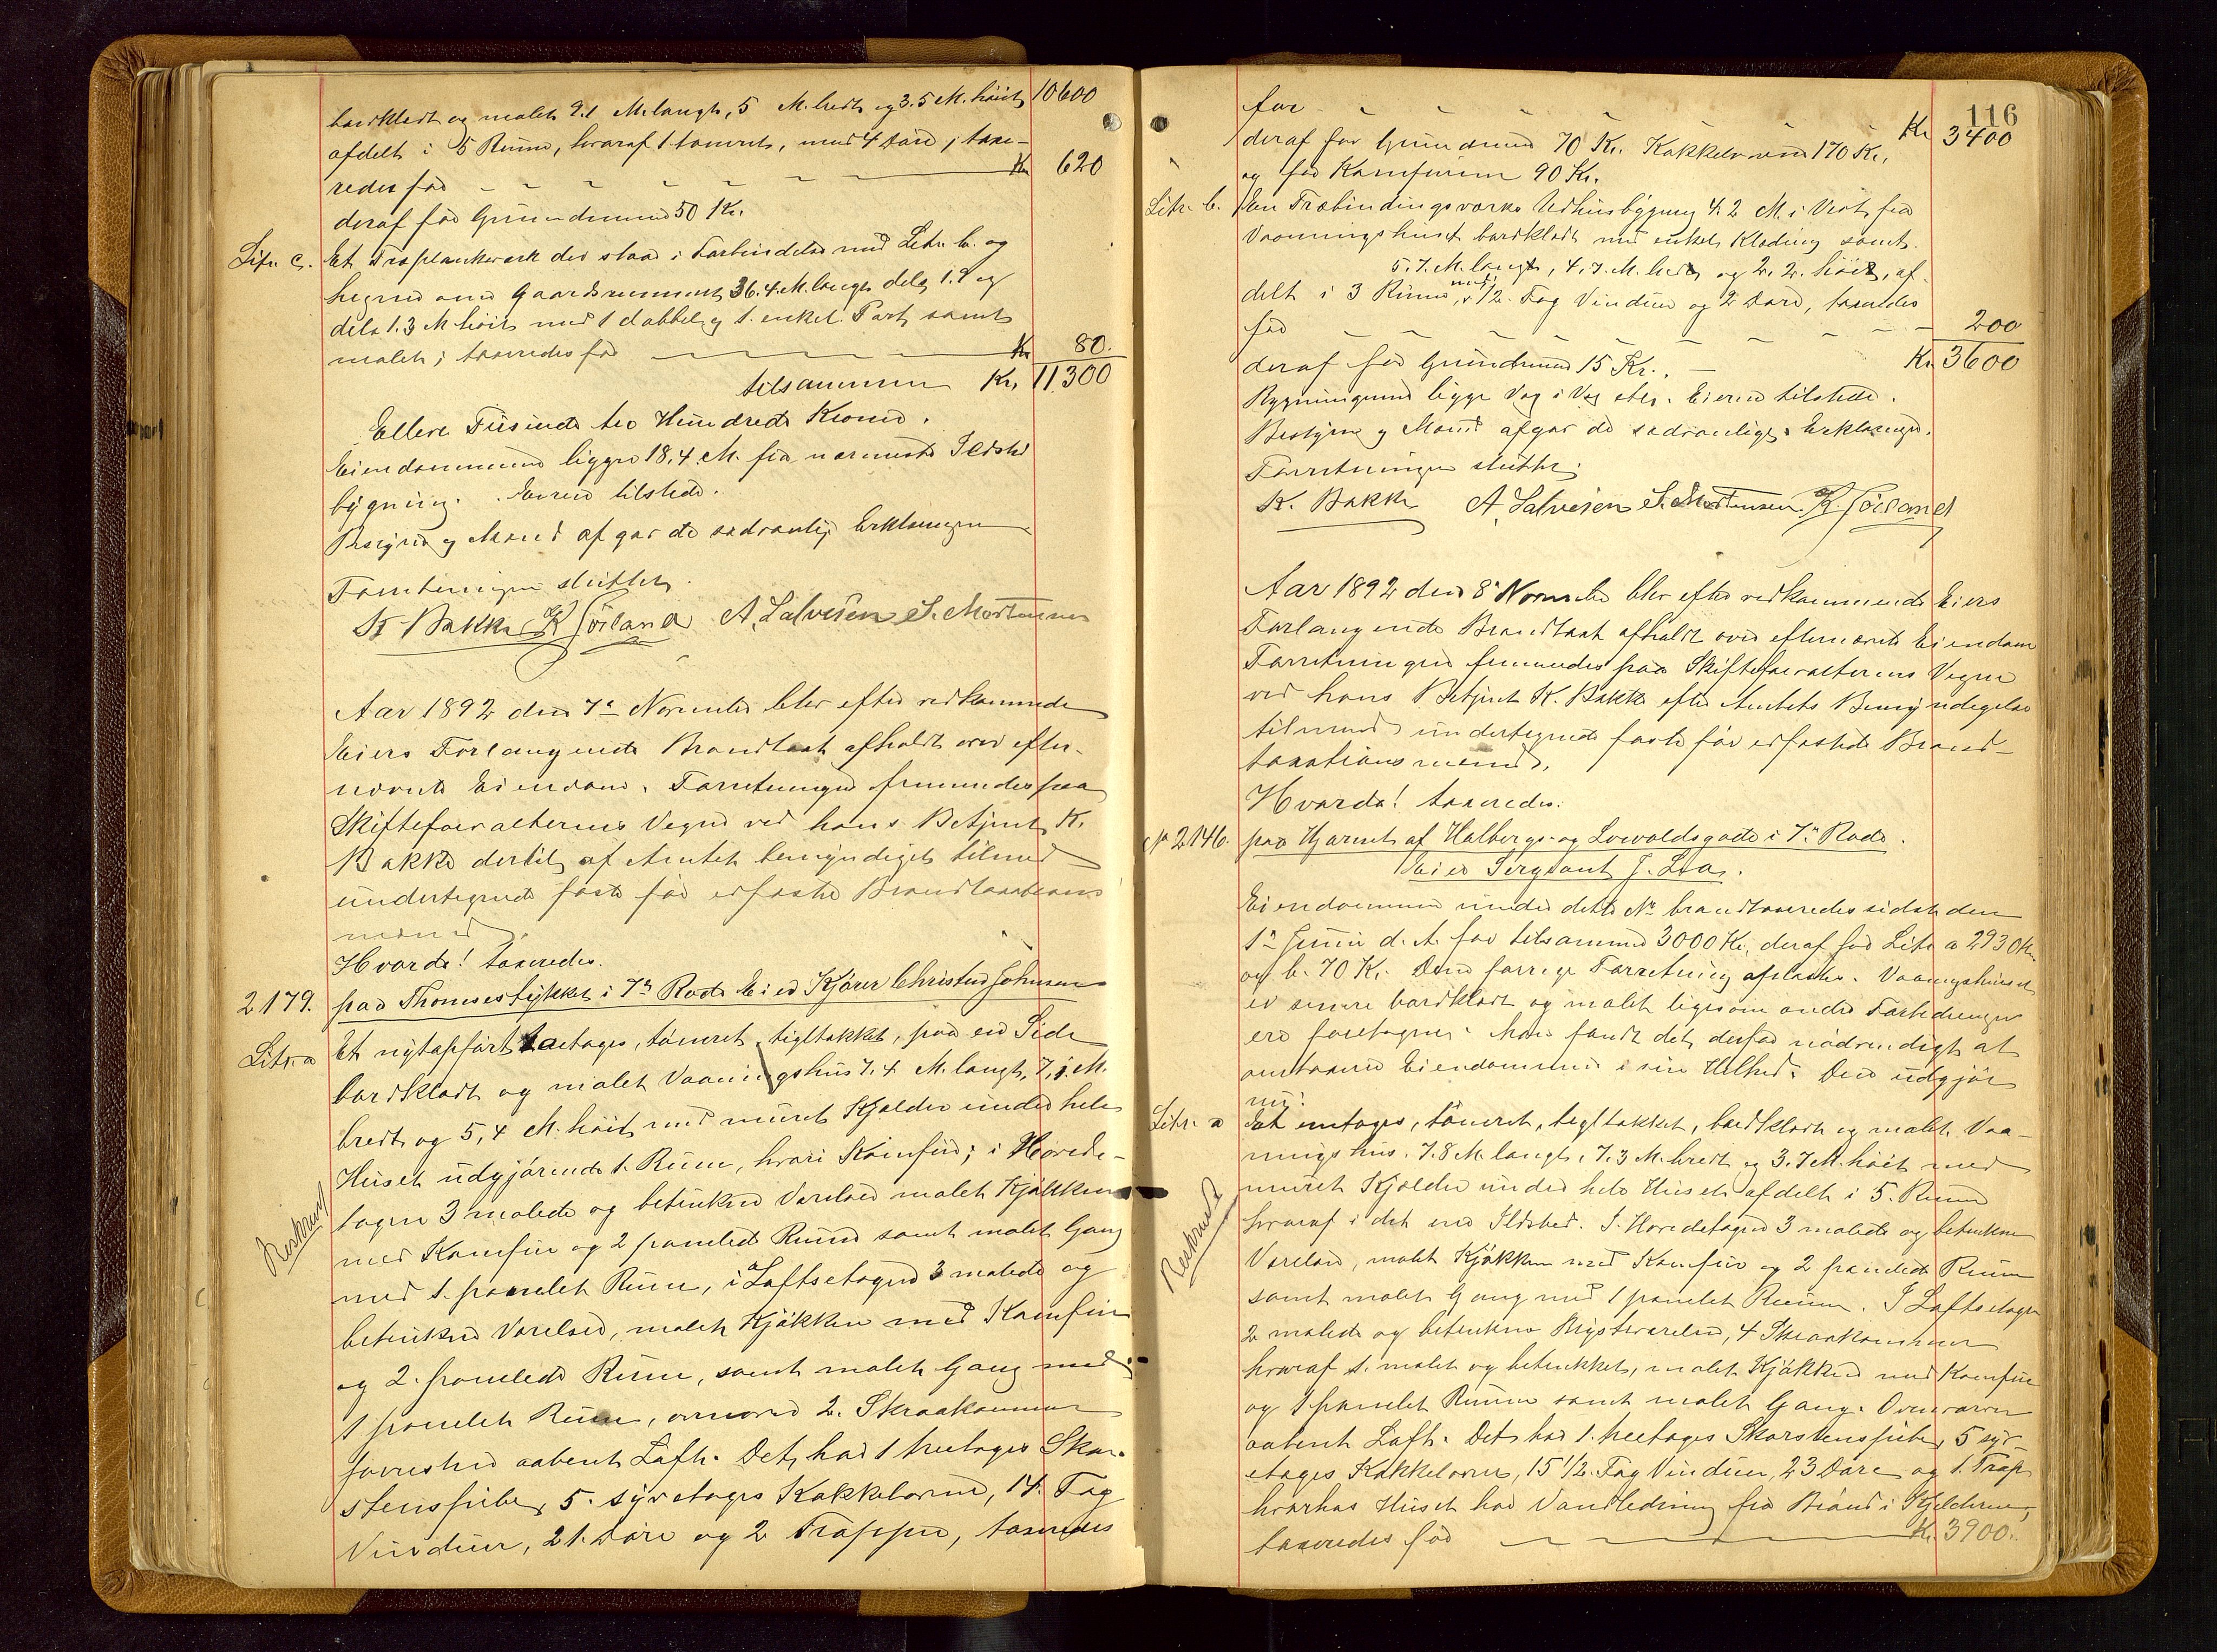 bordklædt og malet 9.1 M. langt, 5 M. bredt og 3.5 M. höit 10600
afdelt i 5 Rum, hvoraf 1 tömret, med 4 Döre, taxe-
redes for Kr 620
deraf for Grundmur 50 Kr.
Litr. c. Et Træplankeverk der staar i Forbindelse med Litr. b. og
hegner om Gaardsrummet 36.4 M. langt dels 1.9 og
dels 1.3 M höit med 1 dobbel og 1 enkel Port samt
malet; taxeredes for Kr 80.
tilsammen Kr. 11300
Elleve Tusinde tre Hundrede Kroner.
Eiendommen ligger 18,4 M. fra nærmeste Ildsted
bygning. Eieren tilstede.
Bestyrer og Mænd afgav de sedvanlige Erklæringer
Forretningen sluttet.
K. Bakke K Görland A. Salvesen S. Mortensen
Aar 1892 den 7de November blev efter vedkommende
Eiers Forlangende Brandtaxt afholdt over efter-
nævnte Eiendom. Forretningen fremmedes paa
Skifteforvalterens Vegne ved hans Betjent K.
Bakke dertil af Amtet bemyndiget tilmed
undertegnede faste for edfæstede Brandtaxations
mænd.
Hvorda! taxeredes.
2179. paa Thomsestykket i 7de Rode Eier Kjörer Christen Johnsen
Litr. a Et nytopfört toetages, tömret, tegltækket, paa en Side
bordklædt og malet Vaaningshus 7.4 M. langt, 7,1. M.
bredt og 5,4 M. höit med muret Kjelder under hele
Huset udgjörende 1. Rum, hvori Komfur; i Hovede-
tagen 3 malede og betrukne Værelser malet Kjökken
Beskrevet
med Komfur og 2 panelede Rum samt malet Gang
med 1. panelet Rum, i Loftsetagen 3 malede og
betrukne Værelser, malet Kjökken med Komfur
og 2. panelede Rum, samt malet Gang med
1 panelet Rum, ovenover 2. Skraakammer
forresten aabent Loft. Det har 1 treetages Skor-
stenspibe, 5. syvetages Kakkelovne, 14. Fag
Vinduer, 21. Döre og 2 Trapper, taxeredes
116
for Kr 3400
deraf for Grundmur 70 Kr. Kakkelovne 170 Kr.
og for Komfurer 90 Kr.
Litr. b. En Træbindingsværks Udhusbygning 4.2 M. i Vest fra
Vaaningshuset bordklædt med enkel Klædning samt
5.7. M. langt, 4.7. M. bredt og 2.2. höit, af-
delt i 3 Rum, med 1/2 Fag Vinduer og 2 Döre, taxeredes
for 200
deraf for Grundmur 15 Kr. Kr 3600
Bygningerne ligge Væg i Væg etc. Eieren tilstede.
Bestyrer og Mænd afgav de sædvanlige Erklæringer.
Forretningen sluttet.
K. Bakke A. Salvesen S. Mortensen K. Görland
Aar 1892 den 8de November blev efter vedkommende Eiers
Forlangende Brandtaxt afholdt over efternævnte Eiendom
Forretningen fremmedes paa Skifteforvalterens Vegne
ved hans Betjent K. Bakke efter Amtets Bemyndigelse
tilmed undertegnede faste for edfæstede Brand-
taxationsmænd.
Hvorda! taxeredes:
No 2146. paa Hjörnet af Holbergs- og Lovoldsgade i 7de Rode.
Eier Sergeant J. Lea.
Eiendommen under dette No brandtaxeredes sidst den
1ste Juni d. A. for tilsammen 3000 Kr, deraf for Litr a 2930 Kr
og b. 70 Kr. Den forrige Forretning oplæstes. Vaaningshuset
er senere bordklædt og malet ligesom andre Forbedringer
ere foretagne. Man fandt det derfor nödvendigt at
omtaxere Eiendommen i sin Helhed. Den udgjör
nu:
Litr. a Et entages, tömret, tegltækket, bordklædt og malet Vaa-
ningshus. 7.8 M. langt, 7.3 M. bredt og 3.7 M. höit med
muret Kjelder under hele Huset afdelt i 5. Rum
Beskrevet
hvoraf i det ene Ildsted. I Hovedetagen 3 malede og betrukne
Værelser, malet Kjökken med Komfur og 2 panelede Rum
samt malet Gang med 1 panelet Rum. I Loftsetagen
2 malede og betrukne Kvistværelser, 4 Skraakammer
hvoraf 1. malet og betrukket, malet Kjökken med Komfur
og 1 panelet Rum samt malet Gang. Ovenover
aabent Loft. Det har 1. treetages Skorstenspibe, 5 syv-
etages Kakkelovne, 15 1/2. Fag Vinduer, 23 Döre og 1. Trap
hvorhos Huset har Vandledning fra Brönd i Kjelderen,
taxeredes for Kr. 3900.